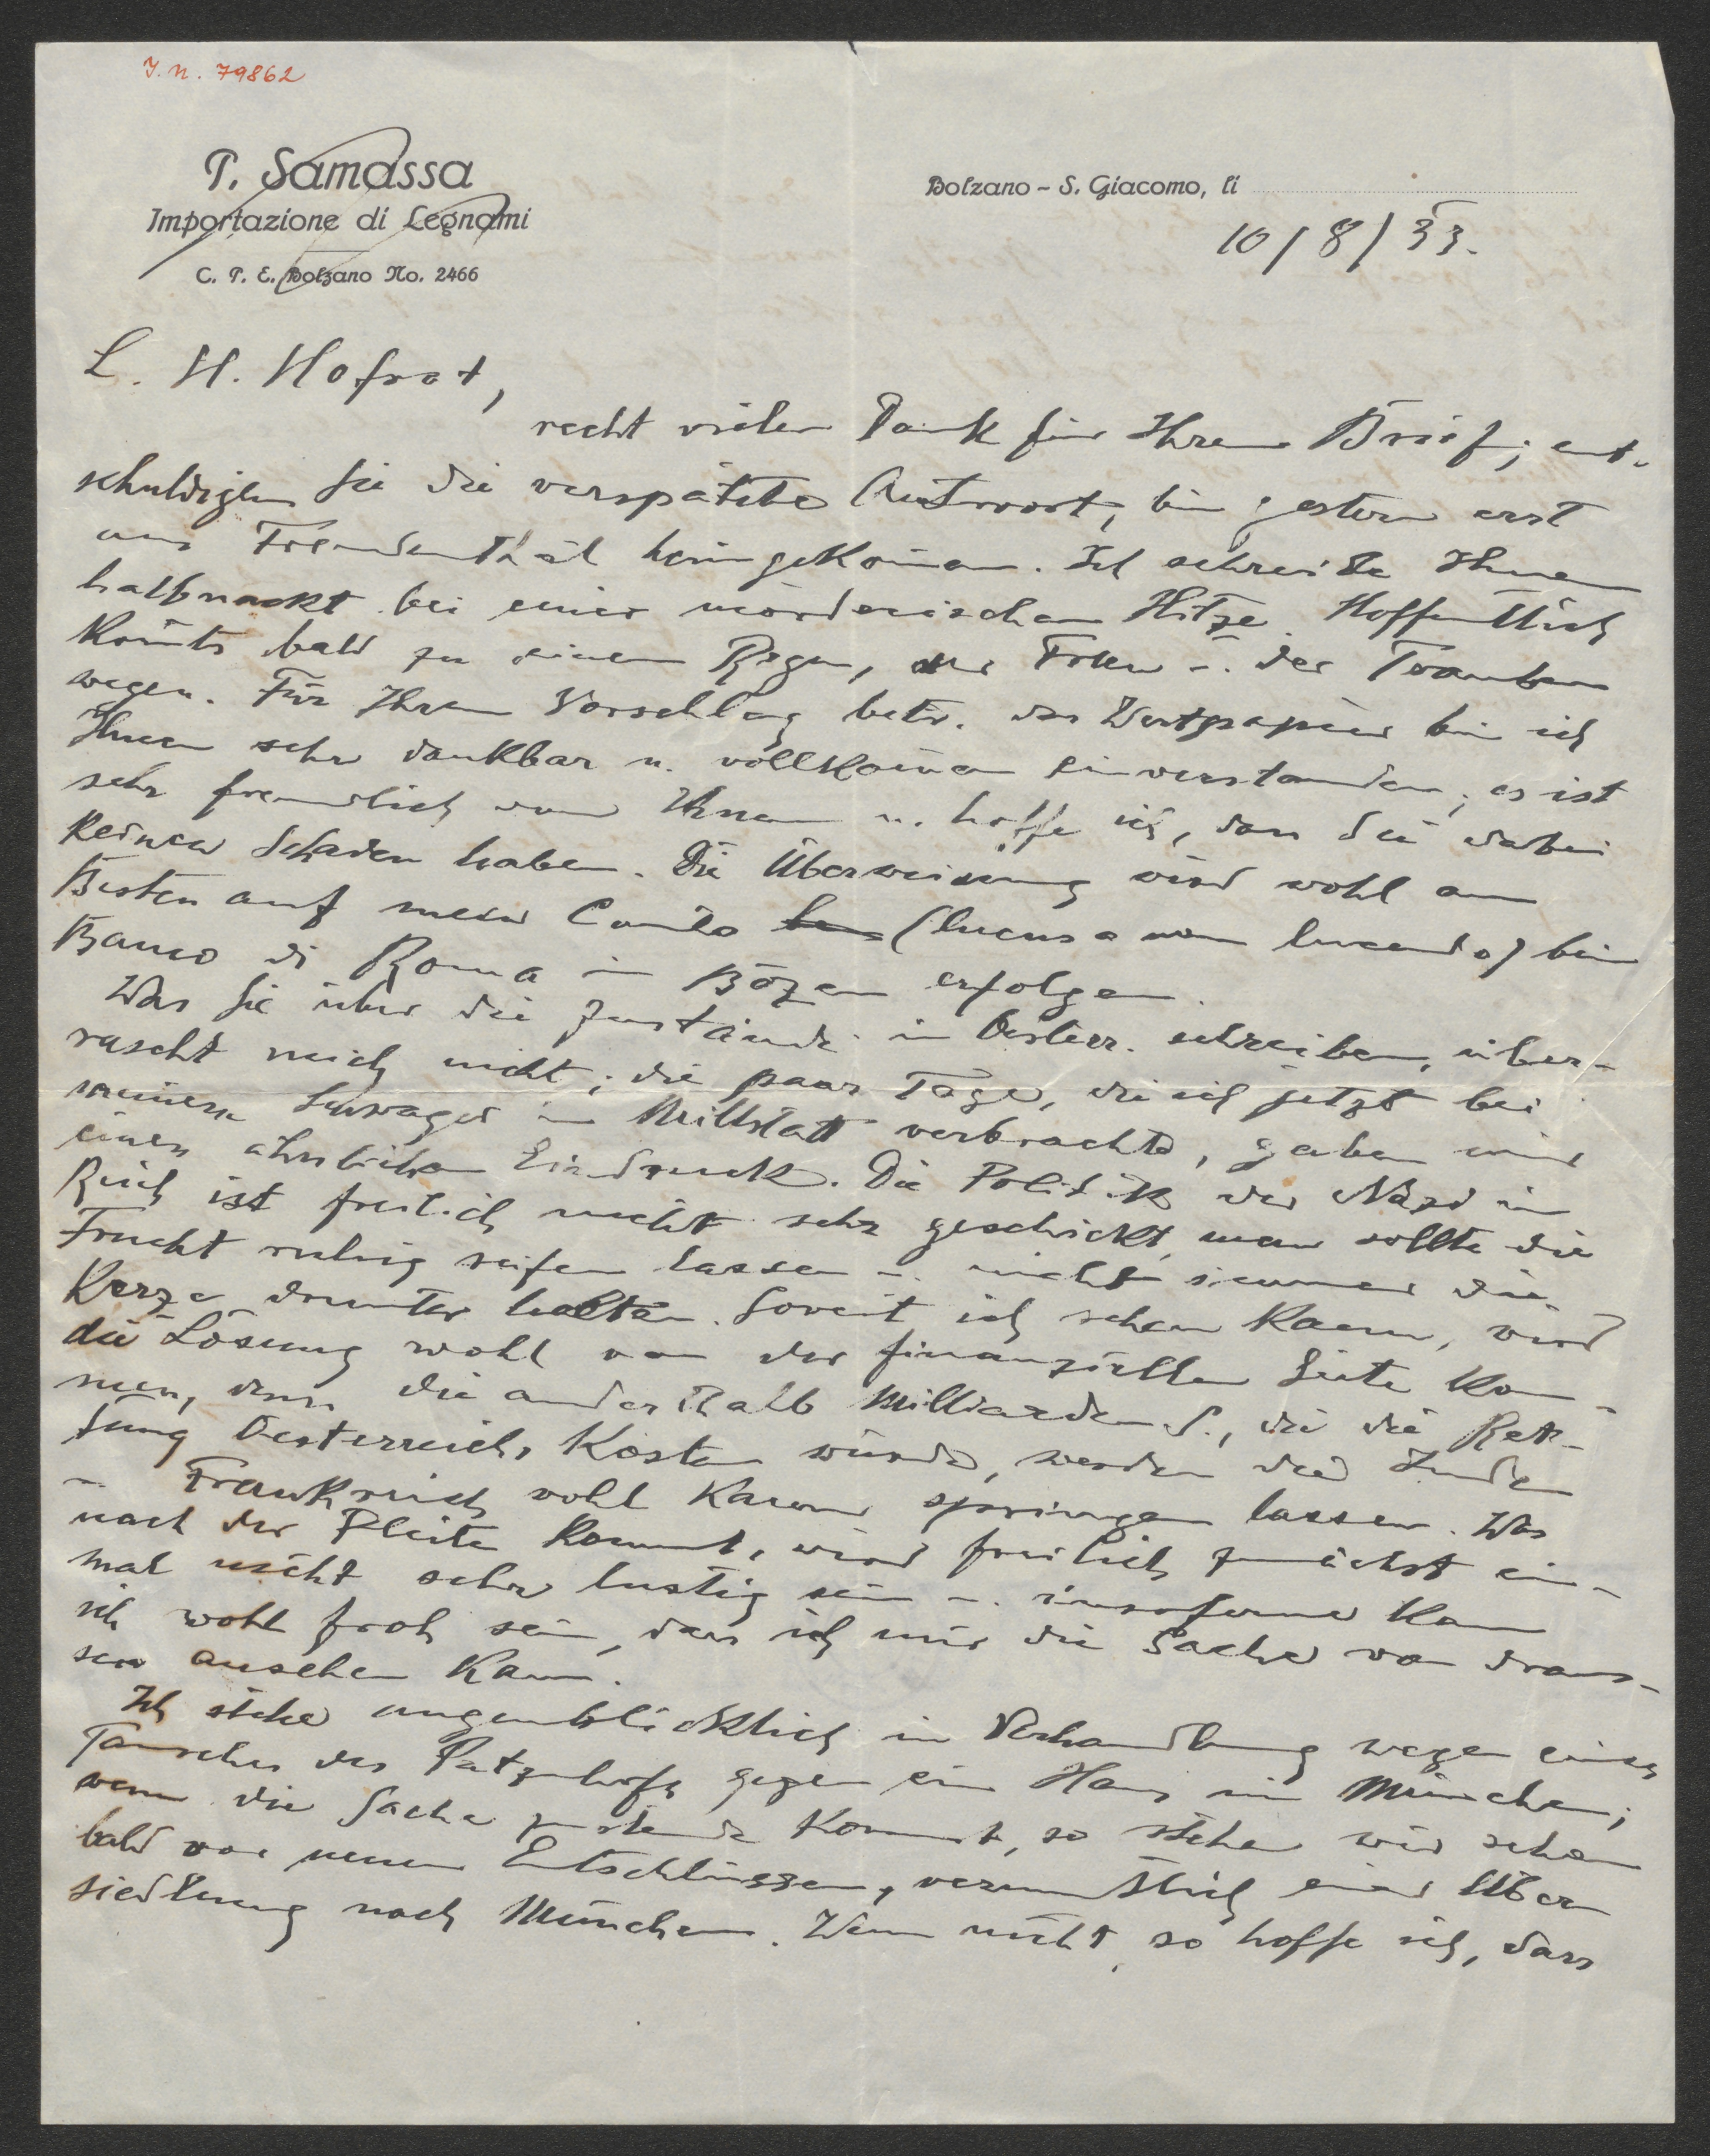 J. N. 79862
P. Samassa
Importazione di Legnami
C. P. E. Bolzano No. 2466
Bolzano - S. Giacomo, li
10/8/33.
L. H. Hofrat,
recht vielen Dank für Ihren Brief; ent-
schuldigen Sie die verspätete Antwort, bin gestern erst
aus Freudenthal heimgekom̄en. Ich schreibe Ihnen
halbnackt bei einer mörderischen Hitze. Hoffentlich
kom̄ts bald zu einem Regen, der u. der Trauben
wegen. Für Ihren Vorschlag betr. der Wertpapiere bin ich
Ihnen sehr dankbar u. vollkom̄en einverstanden; es ist
sehr freundlich von Ihnen u. hoffe ich, dass Sie dabei
keinen Schaden haben. Die Überweisung wird wohl am
Besten auf mein Conto (lucus a non lucendo) bei
Banco di Roma in Bozen erfolgen.
Was Sie über die Zustände in Oesterr. schreiben, über-
rascht mich nicht; die paar Tage, die ich jetzt bei
meinem Schwager in Millstatt verbrachte, gaben mir
einen ähnlichen Eindruck. Die Politik der Nazi im
Reich ist freilich nicht sehr geschickt, man sollte die
Frucht ruhig reifen lassen u. nicht immer die
Kerze drunter halten. Soweit ich sehen kann, wird
die Lösung wohl von der finanziellen Seite kom-
men, denn die anderthalb Milliarden S., die die Ret-
tung Oesterreichs kosten würde, werden die Juden
u. Frankreich wohl kaum springen lassen. Was
nach der Pleite kommt, wird freilich zunächst ein-
mal nicht sehr lustig sein u. insoferne kann
ich wohl froh sein, dass ich mir die Sache von draus-
sen ansehen kann.
Ich stehe augenblicklich in Verhandlung wegen eines
Tausches des Patzenhofs gegen ein Haus in München;
wenn die Sache zustande kommt, so stehen wir schon
bald vor neuen Entschlüssen, vermutlich einer Über
siedlung nach München. Wenn nicht, so hoffe ich, dass